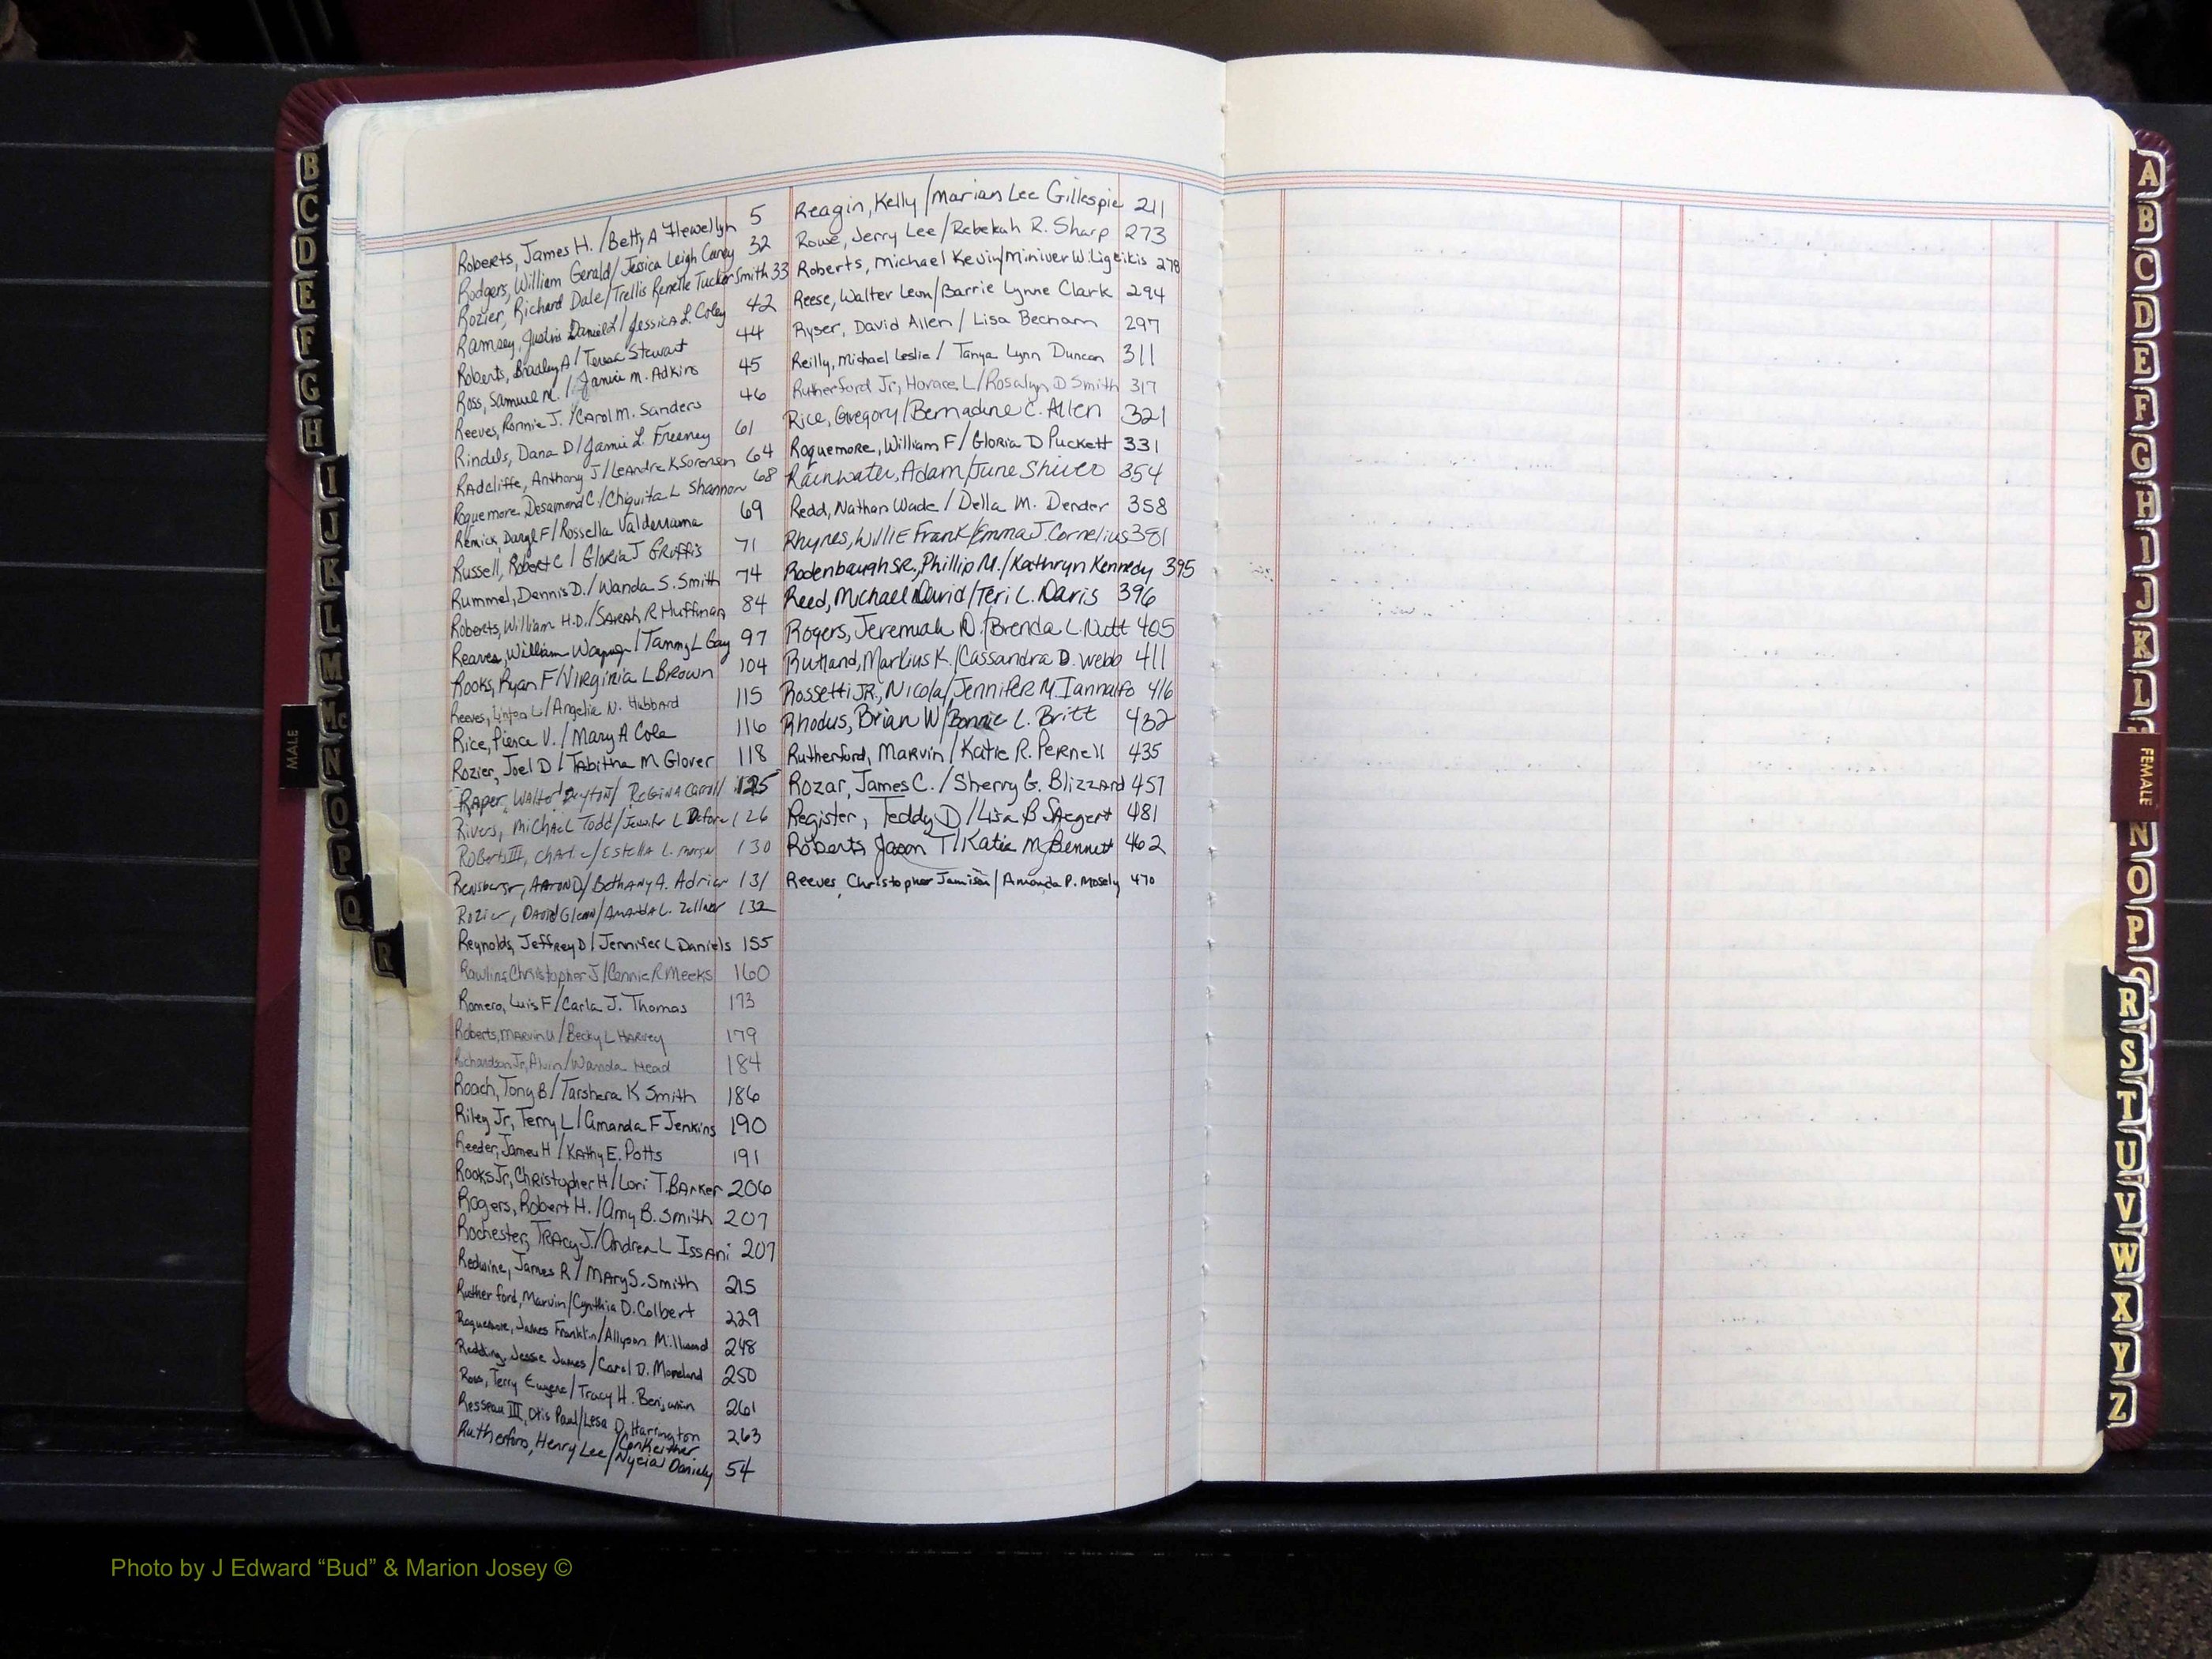 Roberts, James H. / Betty A Flewellyn 5
Rodgers, William Gerald / Jessica Leigh Caney 32
Rozier, Richard Dale / Trellis Renette Tucker Smith 33
Ramsey, Justin Daniel / Jessica L. Coley 42
Roberts, Bradley A / Teresa Stewart 44
Ross, Samuel M. / Janice M. Adkins 45
Reeves, Ronnie J. / Carol M. Sanders 46
Rindels, Dana D / Jamie L. Freeney 61
Radcliffe, Anthony J / LeAndra K Sorensen 64
Roquemore, Desamond C. / Chiquita L Shannon 68
Remick, Daryl F / Rossella Valderrama 69
Russell, Robert C / Gloria J Griffis 71
Rummel, Dennis D. / Wanda S. Smith 74
Roberts, William H.D. / Sarah R Huffman 84
Reaves, William Wayne / Tammy L Gay 97
Rooks, Ryan F / Virginia L Brown 104
Reeves, Linton L / Angelia N. Hubbard 115
Rice, Pierce V. / Mary A Cole 116
Rozier, Joel D / Tabitha M Glover 118
Raper, Walter / Regina Carroll 125
Rivers, Michael Todd / Jennifer L Defore 126
Roberts III, Charlie / Estella L. 130
Rensberger, Aaron D / Bethany A. Adrian 131
Rozier, David Glenn / Amanda L. Zellner 132
Reynolds, Jeffrey D / Jennifer L Daniels 155
Rawlins Christopher J / Connie R Meeks 160
Romero, Luis F / Carla J. Thomas 173
Roberts, Marvin / Becky L Harvey 179
Richardson Jr, Alvin / Wanda Head 184
Roach, Tony B / Tarshera K Smith 186
Riley Jr, Terry L / Amanda F Jenkins 190
Reeder, James H / Kathy E. Potts 191
Rooks Jr, Christopher H / Lori T. Barker 206
Rogers, Robert H. / Amy B. Smith 207
Rochester, Tracy J. / Andrea L Issani 207
Redwine, James R / Mary S. Smith 215
Rutherford, Marvin / Cynthia D. Colbert 229
Roquemore, James Franklin / Allyson Millwood 248
Redding, Jessie James / Carol D. Moreland 250
Ross, Terry Eugene / Tracy H. Benjamin 261
Resseau III, Otis Paul / Lesa D. Harrington 263
Rutherford, Henry Lee / Nycia Daniely 54
Reagin, Kelly / Marian Lee Gillespie 211
Rowe, Jerry Lee / Rebekah R. Sharp 273
Roberts, Michael Kevin / Miniver W. Ligeikis 278
Reese, Walter Leon / Barrie Lynne Clark 294
Ryser, David Allen / Lisa Becham 297
Reilly, Michael Leslie / Tanya Lynn Duncan 311
Rutherford Jr, Horace L / Rosalyn D Smith 317
Rice, Gregory / Bernadine C. Allen 321
Roquemore, William F / Gloria D Puckett 331
Rainwater, Adam / June Shiver 354
Redd, Nathan Wade / Della M. Dender 358
Rhynes, Willie Frank / Emma J. Cornelius 381
Rodenbaugh SR., Phillip M. / Kathryn Kennedy 395
Reed, Michael David / Teri L. Davis 396
Rogers, Jeremiah D. / Brenda L. Nutt 405
Rutland, Markius K. / Cassandra D. Webb 411
Rossetti JR., Nicola / Jennifer M. Iannalfo 416
Rhodus, Brian W / Bonnie L. Britt 432
Rutherford, Marvin / Katie R. Pernell 435
Rozar, James C. / Sherry G. Blizzard 457
Register, Teddy D / Lisa B Saegert 481
Roberts Jason T / Katie M Bennett 462
Reeves, Christopher Jamison / Amanda P. Mosely 470
B
C
D
E
F
G
H
I
J
K
L
M
Mc
N
O
P
Q
R
MALE
A
B
C
D
E
F
G
H
I
J
K
L
FEMALE
N
O
P
Q
R
S
T
U
V
W
X
Y
Z
Photo by J Edward “Bud” & Marion Josey ©